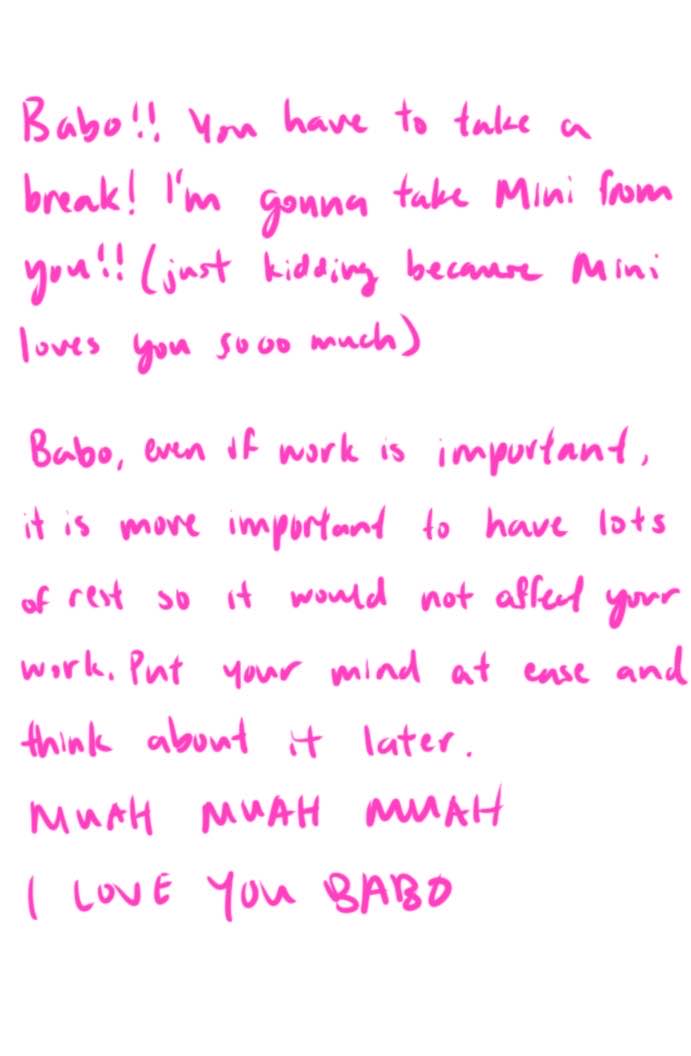 Babo!! You have to take a
break! I'm gonna take Mini from
you!! (just kidding because Mini
loves you sooo much)
Babo, even if work is important,
it is more important to have lots
of rest so it would not affect your
work. Put your mind at ease and
think about it later.
MUAH MUAH MUAH
I LOVE YOU BABO